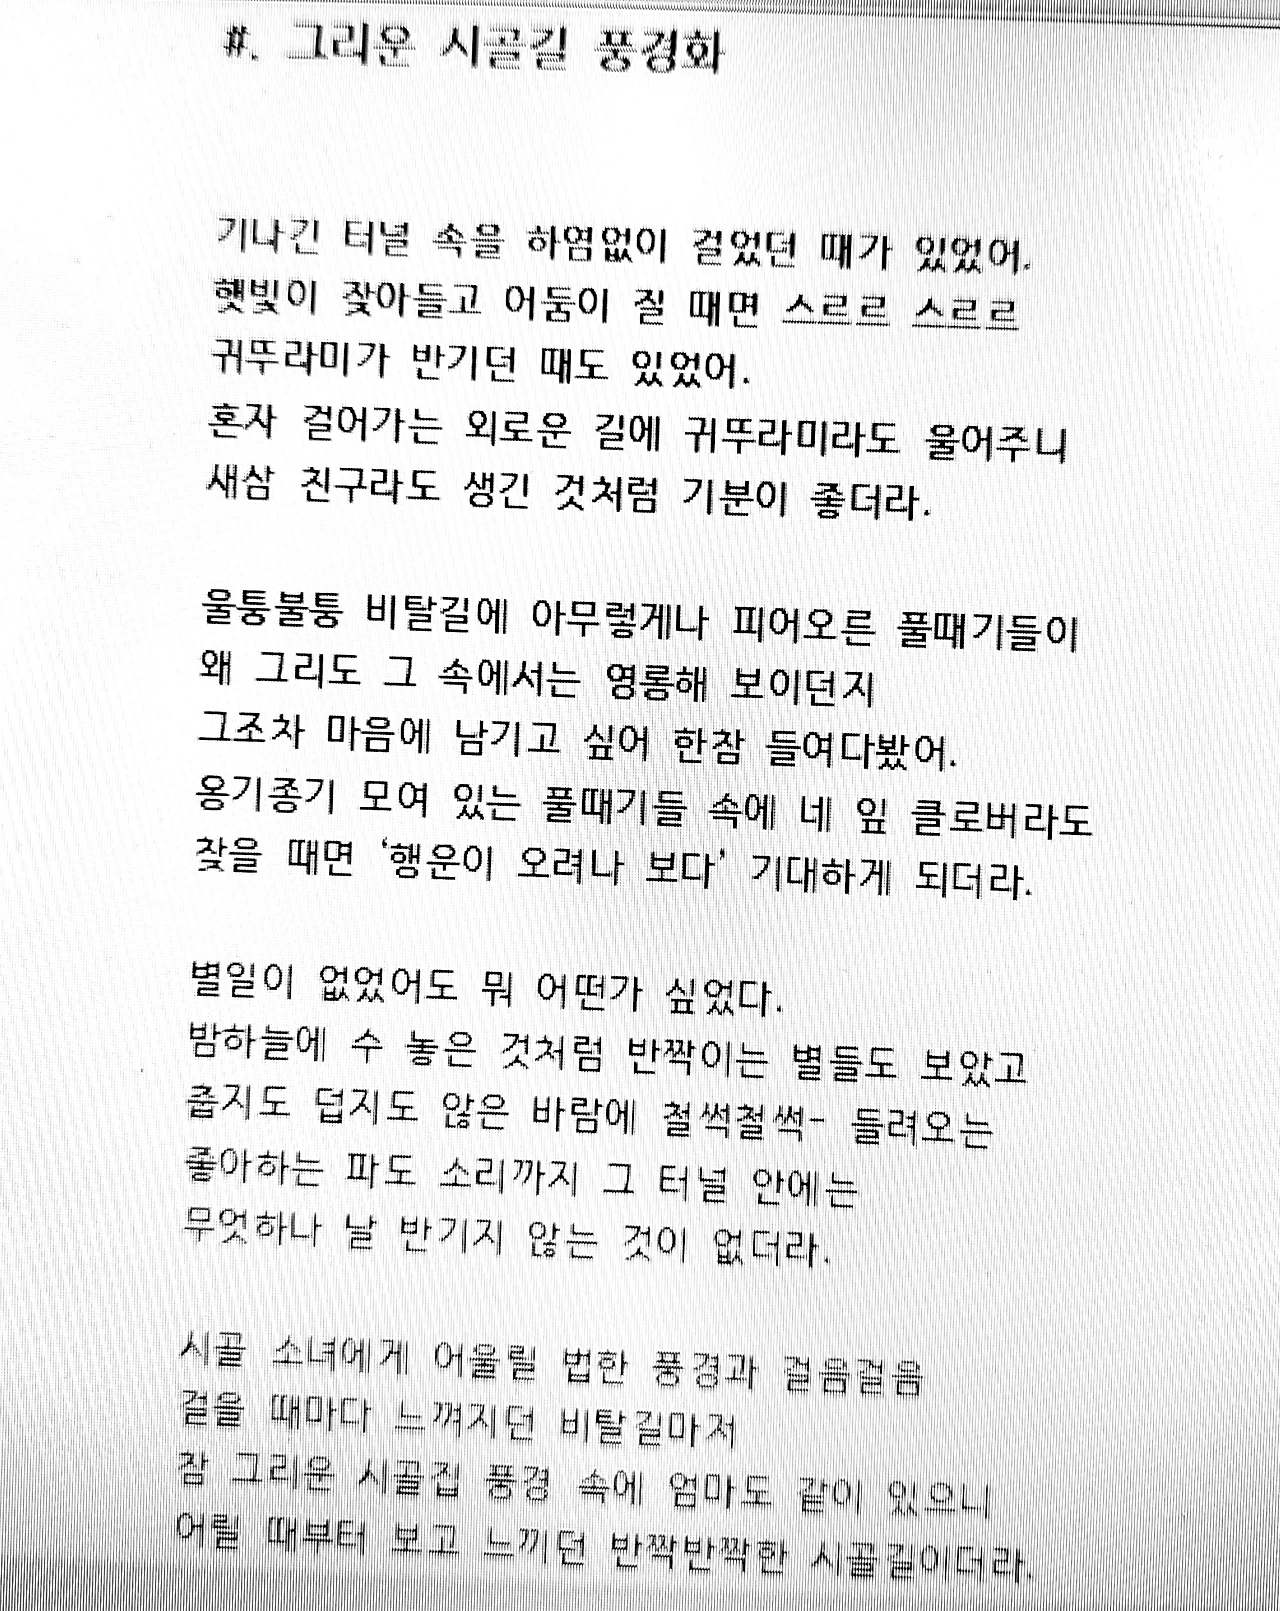 #. 그리운 시골길 풍경화
기나긴 터널 속을 하염없이 걸었던 때가 있었어.
햇빛이 잦아들고 어둠이 질 때면 스르르 스르르
귀뚜라미가 반기던 때도 있었어.
혼자 걸어가는 외로운 길에 귀뚜라미라도 울어주니
새삼 친구라도 생긴 것처럼 기분이 좋더라.
울퉁불퉁 비탈길에 아무렇게나 피어오른 풀때기들이
왜 그리도 그 속에서는 영롱해 보이던지
그조차 마음에 남기고 싶어 한참 들여다봤어.
옹기종기 모여 있는 풀때기들 속에 네 잎 클로버라도
찾을 때면 ‘행운이 오려나 보다’ 기대하게 되더라.
별일이 없었어도 뭐 어떤가 싶었다.
밤하늘에 수 놓은 것처럼 반짝이는 별들도 보았고
춥지도 덥지도 않은 바람에 철썩철썩- 들려오는
좋아하는 파도 소리까지 그 터널 안에는
무엇하나 날 반기지 않는 것이 없더라.
시골 소녀에게 어울릴 법한 풍경과 걸음걸음
걸을 때마다 느껴지던 비탈길마저
참 그리운 시골집 풍경 속에 엄마도 같이 있으니
어릴 때부터 보고 느끼던 반짝반짝한 시골길이더라.